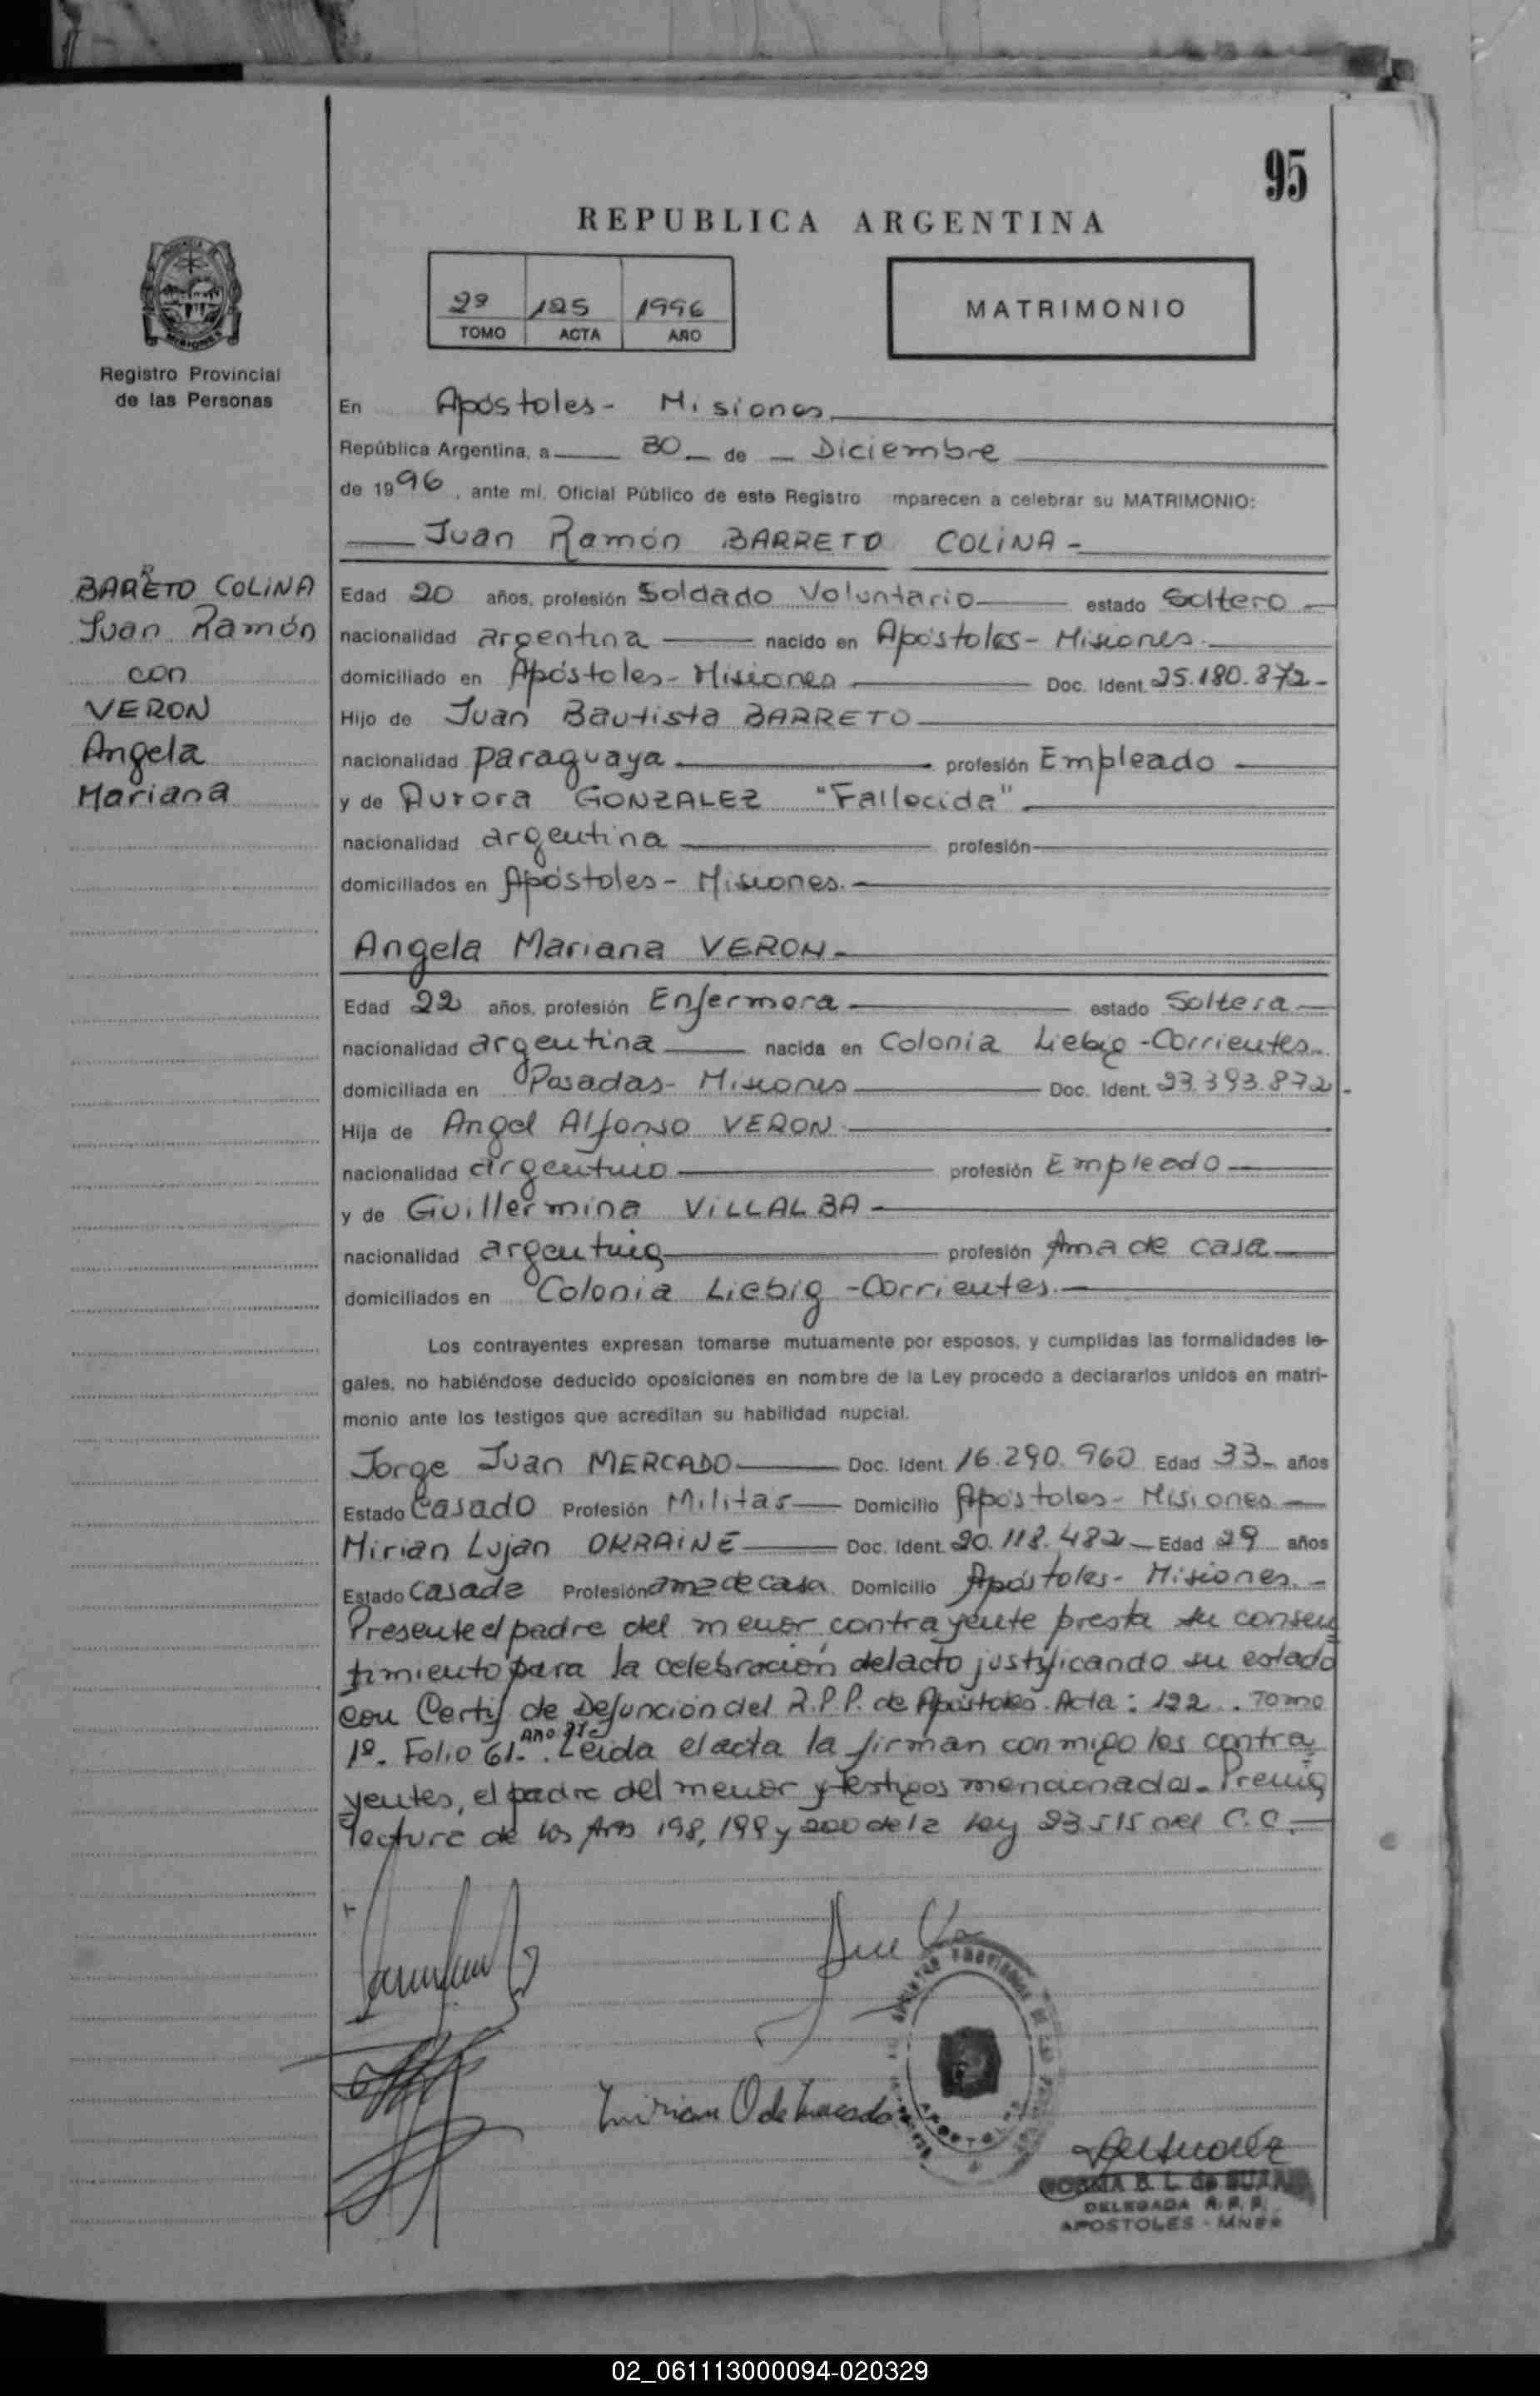 95
REPUBLICA ARGENTINA
2º 125 1996
TOMO ACTA AÑO
MATRIMONIO
Registro Provincial
de las Personas
En Apóstoles - Misiones
República Argentina, a 30 de Diciembre
de 1996, ante mí, Oficial Público de este Registro mparecen a celebrar su MATRIMONIO:
Juan Ramón BARRETO COLINA -
BARRETO COLINA
Juan Ramón
con
VERON
Angela
Mariana
Edad 20 años, profesión Soldado Voluntario estado Soltero
nacionalidad argentina nacido en Apóstoles - Misiones.
domiciliado en Apóstoles - Misiones Doc. Ident. 25.180.872 -
Hijo de Juan Bautista BARRETO
nacionalidad paraguaya profesión Empleado
y de Aurora GONZALEZ "Fallecida"
nacionalidad argentina profesión
domiciliados en Apóstoles - Misiones.
Angela Mariana VERON
Edad 22 años, profesión Enfermera estado Soltera
nacionalidad argentina nacida en Colonia Liebig - Corrientes
domiciliada en Posadas - Misiones Doc. Ident. 23.393.872 -
Hija de Angel Alfonso VERON
nacionalidad argentino profesión Empleado
y de Guillermina VILLALBA
nacionalidad argentina profesión Ama de casa
domiciliados en Colonia Liebig - Corrientes.
Los contrayentes expresan tomarse mutuamente por esposos, y cumplidas las formalidades le-
gales, no habiéndose deducido oposiciones en nombre de la Ley procedo a declararlos unidos en matri-
monio ante los testigos que acreditan su habilidad nupcial.
Jorge Juan MERCADO Doc. Ident. 16.290.960 Edad 33 años
Estado Casado Profesión Militar Domicilio Apóstoles - Misiones
Mirian Lujan OKRAINE Doc. Ident. 20.118.482 Edad 29 años
Estado Casada Profesión ama de casa Domicilio Apóstoles - Misiones. -
Presente el padre del menor contrayente presta su consen
timiento para la celebración del acto justificando su estado
con Certif de Defunción del R.P.P. de Apóstoles. Acta: 122. Tomo
1º. Folio 61. Año Leida el acta la firman conmigo los contra
yentes, el padre del menor y testigos mencionados. Previa
lectura de los Arts 198, 199 y 200 de la Ley 23.515 del C.C.
Mirian O de Mercado
NORMA B. L. de
DELEGADA R.P.P.
APOSTOLES - MNES
02_061113000094-020329